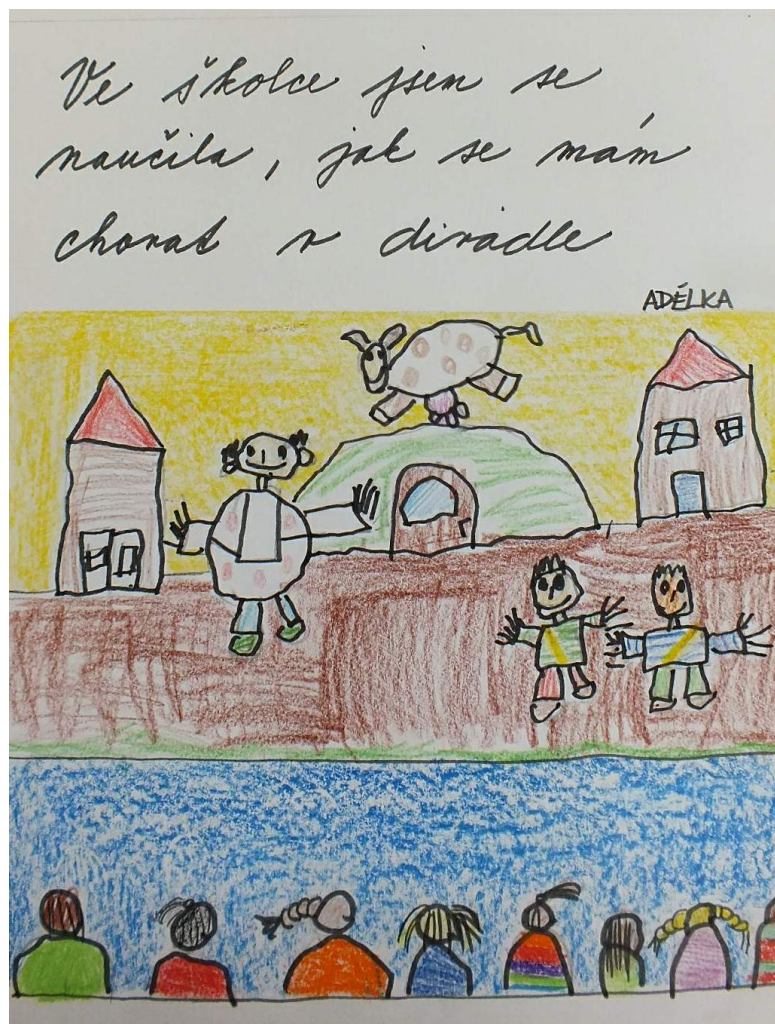 Ve školce jsem se
naučila, jak se mám
chovat v divadle
ADÉLKA